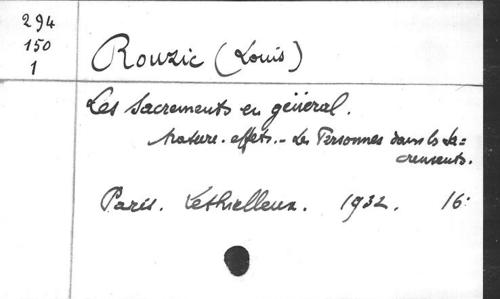 294
150
1
Rouzic (Louis)
Les Sacrements en général.
Nature. effets. - Les Personnes dans les Sa=
crements.
Paris. Lethielleux. 1932. 16: